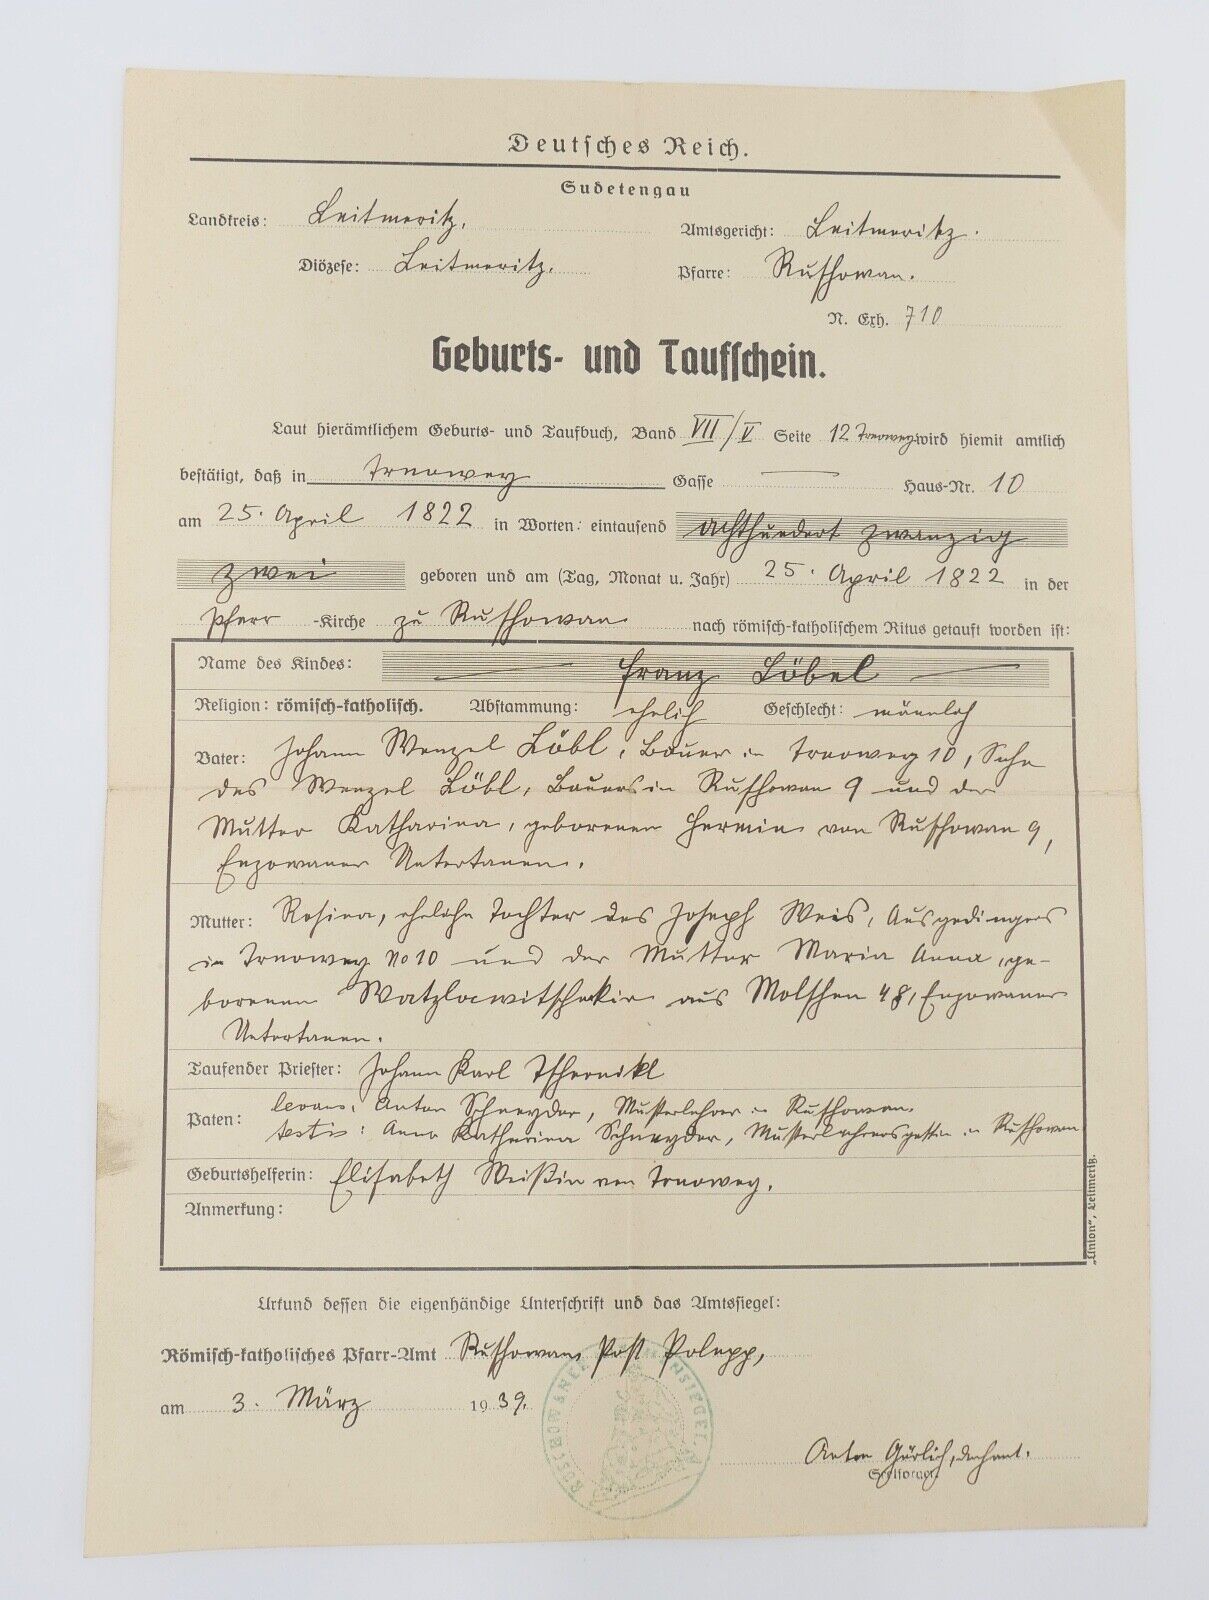 Deutsches Reich.
Sudetengau
Landkreis: Leitmeritz. Amtsgericht: Leitmeritz.
Diözese: Leitmeritz. Pfarre: Ruschowan.
N. Exh. 710
Geburts- und Taufschein.
Laut hierämtlichem Geburts- und Taufbuch, Band VII/V Seite 12 Trnowey wird hiemit amtlich
bestätigt, daß in Trnowey Gasse — Haus-Nr. 10
am 25. April 1822 in Worten: eintausend achthundert zwanzig
zwei geboren und am (Tag, Monat u. Jahr) 25. April 1822 in der
Pfarr-Kirche zu Ruschowan nach römisch-katholischem Ritus getauft worden ist:
Name des Kindes: — Franz Löbel —
Religion: römisch-katholisch. Abstammung: ehelich Geschlecht: männlich
Vater: Johann Wenzel Löbl, Bauer in Trnoweg 10, Sohn
des Wenzel Löbl, Bauers in Ruschowan 9 und der
Mutter Katharina, geborenen Hermin von Ruschowan 9,
Enzowaner Untertanen.
Mutter: Rosina, eheliche Tochter des Joseph Weis, Ausgedingers
in Trnoweg No 10 und der Mutter Maria Anna, ge-
borenen Watzlawitschekin aus Molschen 48, Enzowaner
Untertanen.
Taufender Priester: Johann Karl Tschernikl
Paten: levans: Anton Schneyder, Musterlehrer in Ruschowan.
testis: Anna Katherina Schneyder, Musterlehrersgattin in Ruschowan
Geburtshelferin: Elisabeth Weißin von Trnoweg.
Anmerkung:
„Union", Leitmeritz.
Urkund dessen die eigenhändige Unterschrift und das Amtssiegel:
Römisch-katholisches Pfarr-Amt Ruschowan, Post Polepp,
am 3. März 1939.
Anton Görlich, Dechant.
Seelsorger.